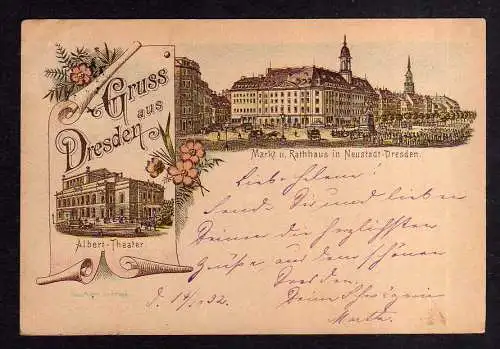 Gruss
aus
Dresden
Markt u. Rathhaus in Neustadt-Dresden.
Albert-Theater.
Liebe
Sende Dir und lieben
Deinen die herzlichsten
Grüße aus dem schönen
Dresden.
Deine Schwägerin
Martha
D. 14/